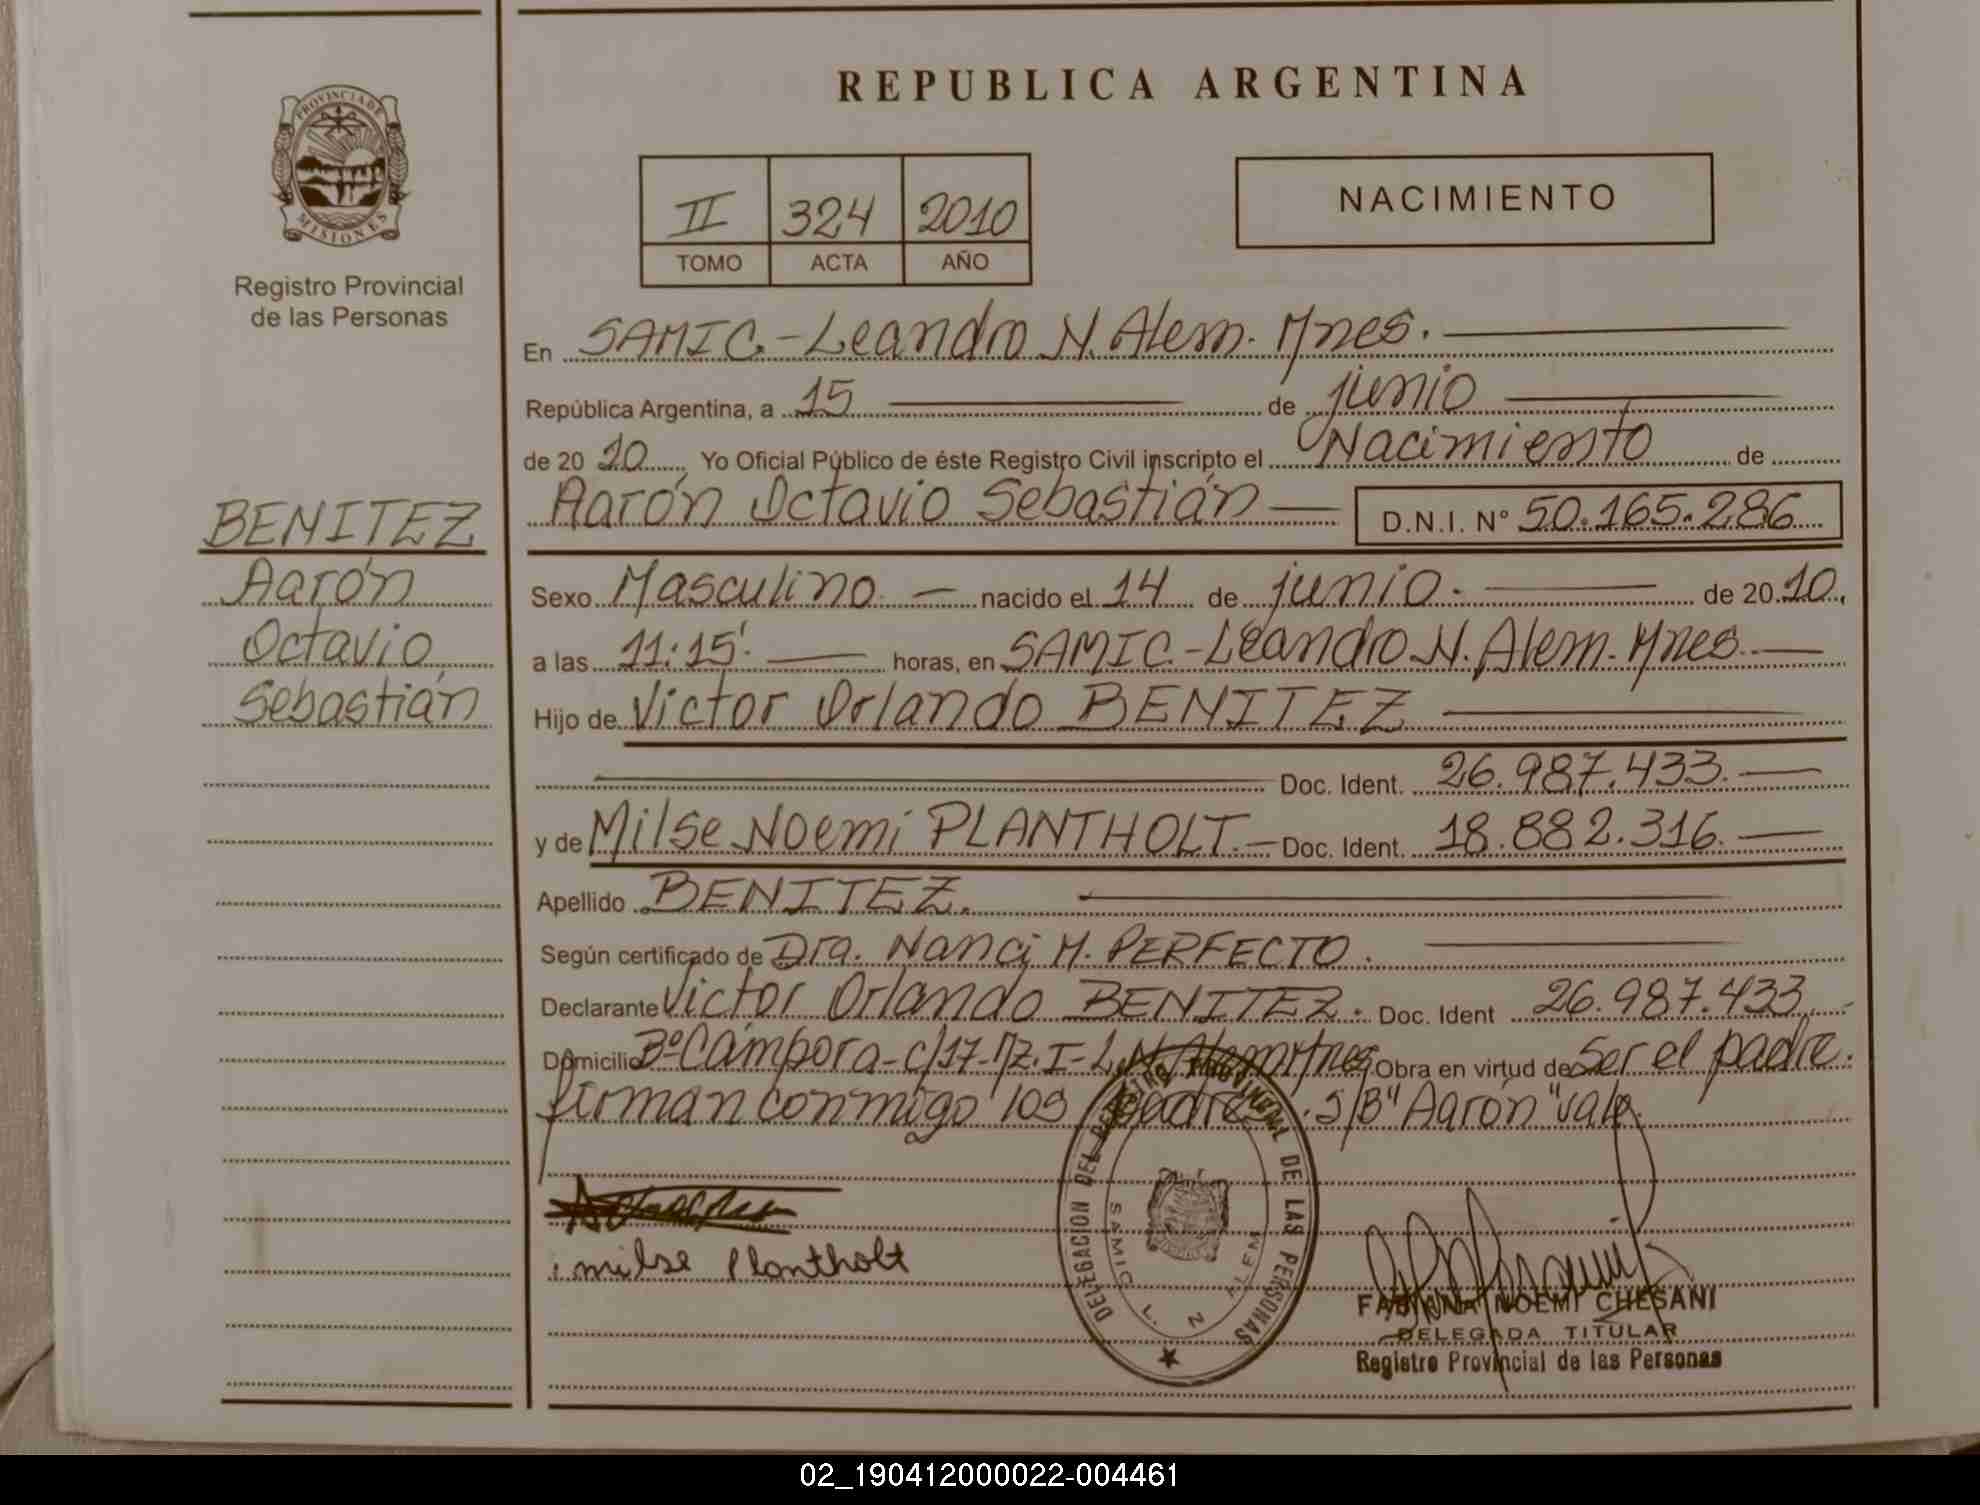 REPUBLICA ARGENTINA
PROVINCIA DE
MISIONES
Registro Provincial
de las Personas
BENITEZ
Aarón
Octavio
Sebastián
II 324 2010
TOMO ACTA AÑO
NACIMIENTO
En SAMIC.-Leandro N. Alem. Mnes.
República Argentina, a 15 de junio
de 20 10 Yo Oficial Público de éste Registro Civil inscripto el Nacimiento de
Aarón Octavio Sebastián D.N.I. N° 50.165.286
Sexo Masculino nacido el 14 de junio. de 20 10,
a las 11:15' horas, en SAMIC.-Leandro N. Alem. Mnes.
Hijo de Victor Orlando BENITEZ
Doc. Ident. 26.987.433.
y de Milse Noemi PLANTHOLT. Doc. Ident. 18.882.316.
Apellido BENITEZ.
Según certificado de Dra. Nanci M. PERFECTO.
Declarante Victor Orlando BENITEZ. Doc. Ident 26.987.433.
Domicilio B° Cámpora-c/17-Mz. I-L.N. Alem Mnes Obra en virtud de Ser el padre.
firman conmigo los padres. S/B "Aarón" vale.
milse Plantholt
DELEGACION DEL REGISTRO PROVINCIAL DE LAS PERSONAS
SAMIC L. N ALEM
FABIANA NOEMI CHESANI
DELEGADA TITULAR
Registro Provincial de las Personas
02_190412000022-004461